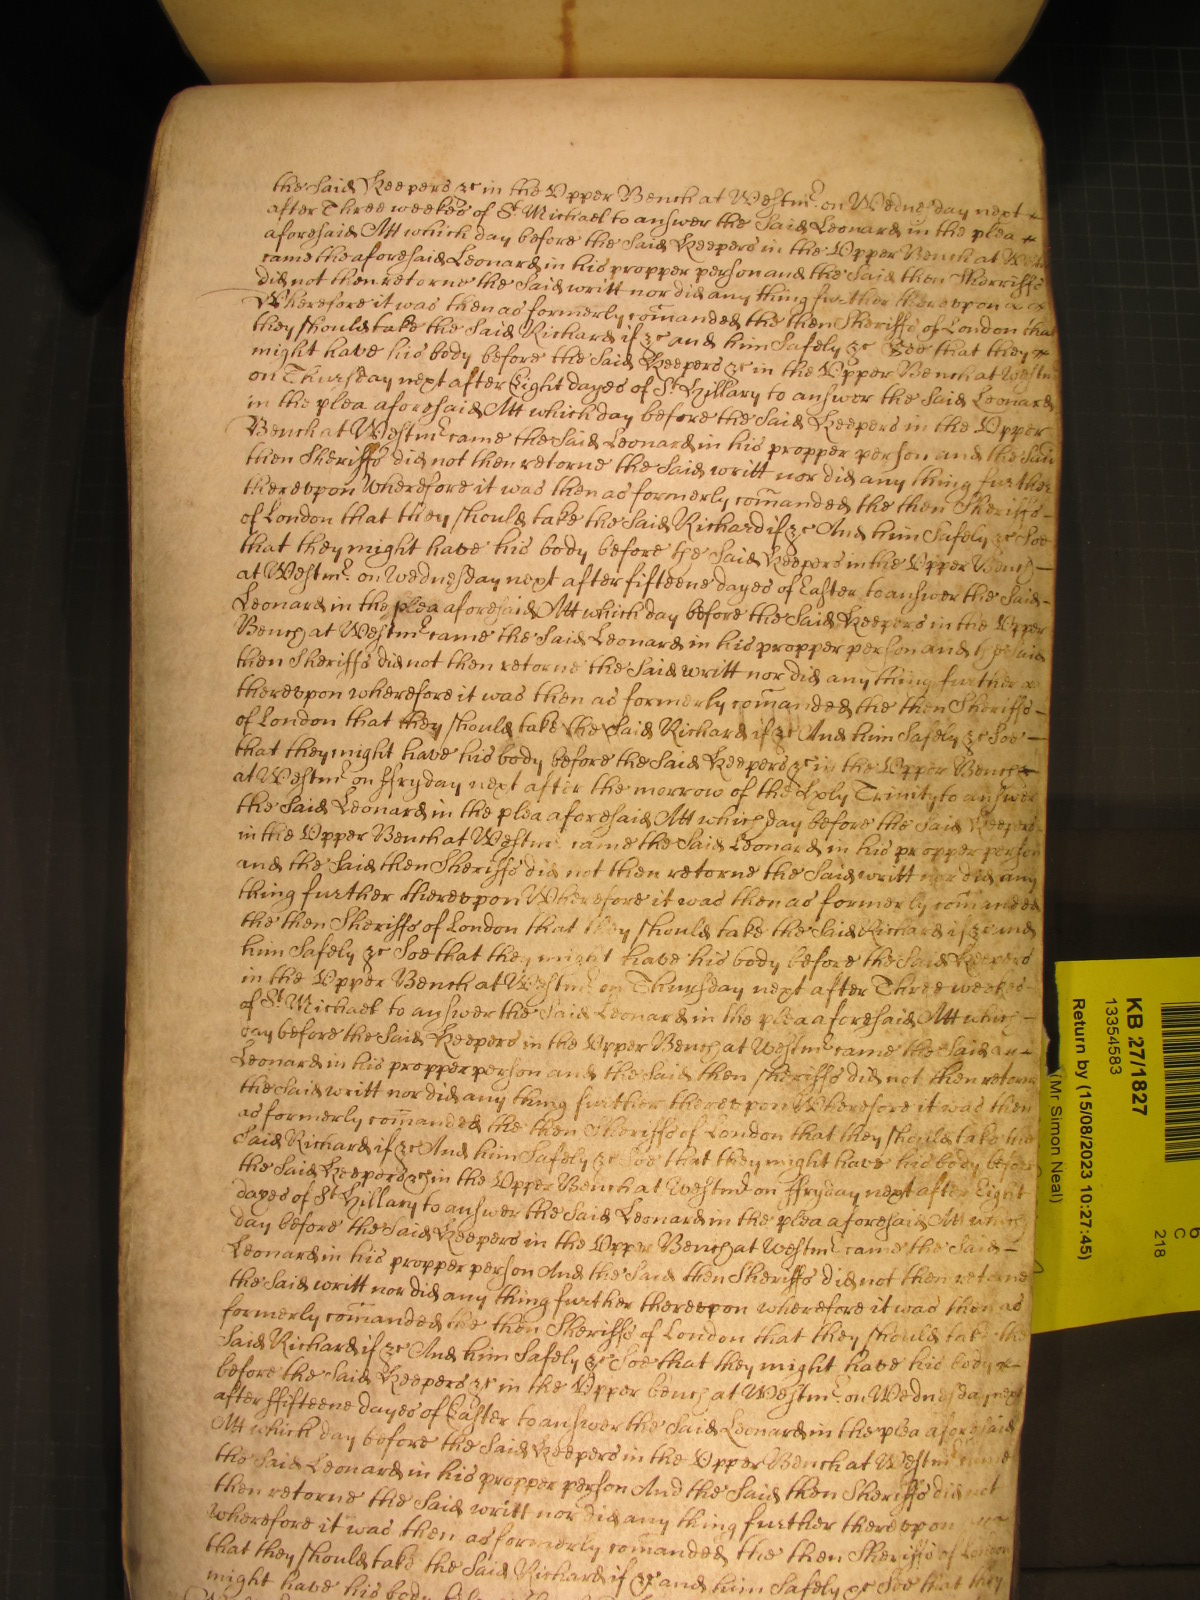 the said Keepers &c in the Upper Bench at Westmr. on Wednesday next
after Three weekes of St. Michael to answer the said Leonard in the plea
aforesaid Att which day before the said Keepers in the Upper Bench at
came the aforesaid Leonard in his propper person and the said then Sherriffs
did not then retorne the said writt nor did any thing further thereupon
Wherefore it was then as formerly comanded the then Sheriffs of London that
they should take the said Richard if &c and him safely &c Soe that they
might have his body before the said Keepers &c in the Upper Bench at Westm
on Thursday next after Eight dayes of St. Hillary to answer the said Leonard
in the plea aforesaid Att which day before the said Keepers in the Upper
Bench at Westmr came the said Leonard in his propper person and the said
then Sheriffs did not then retorne the said writt nor did any thing further
thereupon wherefore it was then as formerly comanded the then Sheriffs
of London that they should take the said Richard if &c And him safely &c Soe
that they might have his body before the said Keepers in the Upper Bench
at Westmr. on Wednesday next after fifteene dayes of Easter to answer the said
Leonard in the plea aforesaid Att which day before the said Keepers in the Upper
Bench at Westmr came the said Leonard in his propper person and the said
then Sheriffs did not then retorne the said writt nor did any thing further
thereupon wherefore it was then as formerly comanded the then Sheriffs
of London that they should take the said Richard if &c And him safely &c Soe
that they might have his body before the said Keepers &c in the Upper Bench
at Westmr on ffryday next after the morrow of the holy Trinity to answer
the said Leonard in the plea aforesaid Att which day before the said Keepers
in the Upper Bench at Westmr. came the said Leonard in his propper person
and the said then Sheriffs did not then retorne the said writt nor did any
thing further thereupon Wherefore it was then as formerly comanded
the then Sheriffs of London that they should take the said Richard if &c and
him safely &c Soe that they might have his body before the said Keepers
in the Upper Bench at Westmr. on Thursday next after Three weekes
of St. Michael to answer the said Leonard in the plea aforesaid Att which
day before the said Keepers in the Upper Bench at Westmr came the said
Leonard in his propper person and the said then sheriffs did not then retorne
the said writt nor did any thing further thereupon Wherefore it was then
as formerly comanded the then Sheriffs of London that they should take the
said Richard if &c And him safely &c Soe that they might have his body before
the said Keepers &c in the Upper Bench at Westmr on ffryday next after Eight
dayes of St. Hillary to answer the said Leonard in the plea aforesaid Att which
day before the said Keepers in the Upper Bench at Westmr came the said
Leonard in his propper person And the said then Sheriffs did not then retorne
the said writt nor did any thing further thereupon wherefore it was then as
formerly comanded the then Sheriffs of London that they should take the
said Richard if &c And him safely &c Soe that they might have his body
before the said Keepers &c in the Upper bench at Westmr. on Wednesday next
after ffifteene dayes of Easter to answer the said Leonard in the plea aforesaid
Att which day before the said Keepers in the Upper Bench at Westmr came
the said Leonard in his propper person And the said then Sheriffs did not
then retorne the said writt nor did any thing further thereupon
wherefore it was then as formerly comanded the then Sheriffs of London
that they should take the said Richard if &c and him safely &c Soe that they
might have his body
KB 27/1827
13354583
Return by (15/08/2023 10:27:45)
(Mr Simon Neal)
6
C
218